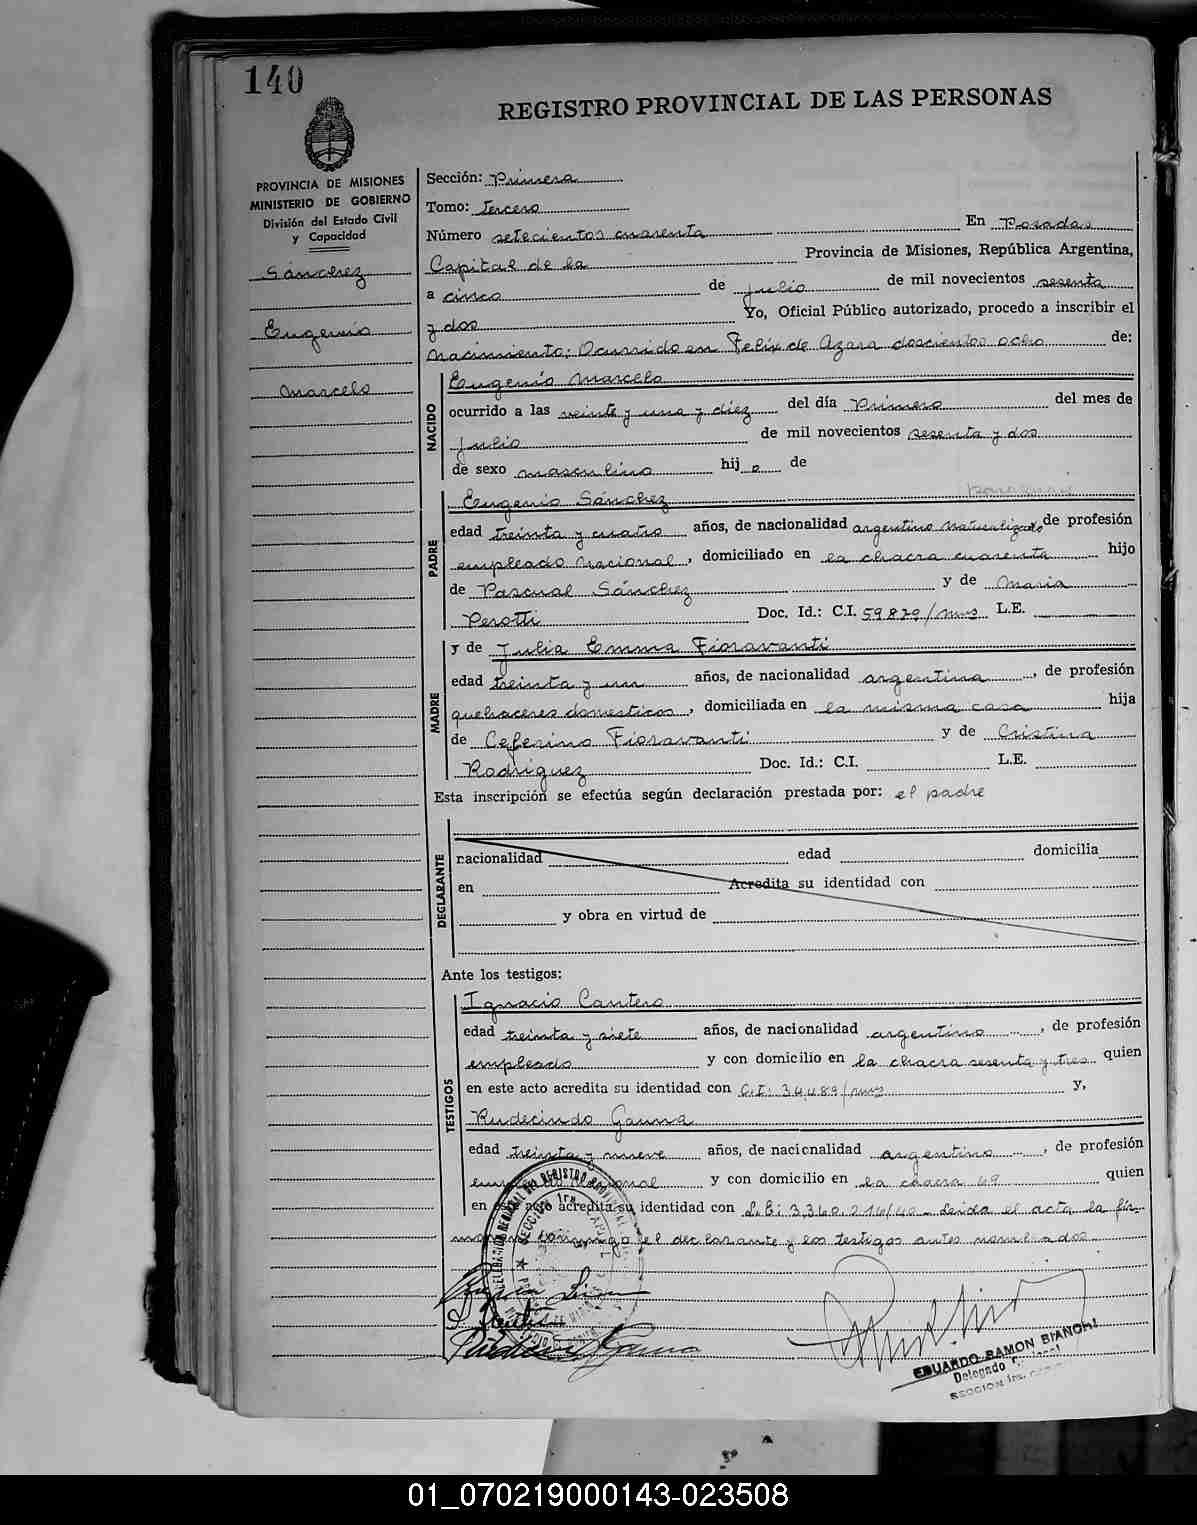 140
REGISTRO PROVINCIAL DE LAS PERSONAS
PROVINCIA DE MISIONES
MINISTERIO DE GOBIERNO
División del Estado Civil
y Capacidad
Sánchez
Eugenio
Marcelo
Sección: Primera
Tomo: tercero
Número setecientos cuarenta En Posadas
Capital de la Provincia de Misiones, República Argentina,
a cinco de julio de mil novecientos sesenta
y dos Yo, Oficial Público autorizado, procedo a inscribir el
nacimiento: Ocurrido en Felix de Azara doscientos ocho de:
NACIDO
Eugenio Marcelo
ocurrido a las veinte y una y diez del día Primero del mes de
julio de mil novecientos sesenta y dos
de sexo masculino hij o de
PADRE
Eugenio Sánchez
edad treinta y cuatro años, de nacionalidad argentino naturalizado de profesión
empleado nacional, domiciliado en la chacra cuarenta hijo
de Pascual Sánchez y de Maria
Perotti Doc. Id.: C.I. 59829/mns L.E.
MADRE
y de Julia Emma Fioravanti
edad treinta y un años, de nacionalidad argentina, de profesión
quehaceres domesticos, domiciliada en la misma casa hija
de Ceferino Fioravanti y de Cristina
Rodriguez Doc. Id.: C.I. L.E.
Esta inscripción se efectúa según declaración prestada por: el padre
DECLARANTE
nacionalidad edad domicilia
en Acredita su identidad con
y obra en virtud de
Ante los testigos:
TESTIGOS
Ignacio Cantero
edad treinta y siete años, de nacionalidad argentino, de profesión
empleado y con domicilio en la chacra sesenta y tres quien
en este acto acredita su identidad con C.I: 34.489/mns y,
Rudecindo Gauna
edad treinta y nueve años, de nacionalidad argentino, de profesión
empleado nacional y con domicilio en la chacra 49 quien
en este acto acredita su identidad con L.E: 3.360.214/40 - Leida el acta la fir-
maron conmigo el declarante y los testigos antes nombrados.
SECCION 1ra. CAPITAL
EDUARDO RAMON BIANCHI
Delegado
SECCION 1ra.
01_070219000143-023508